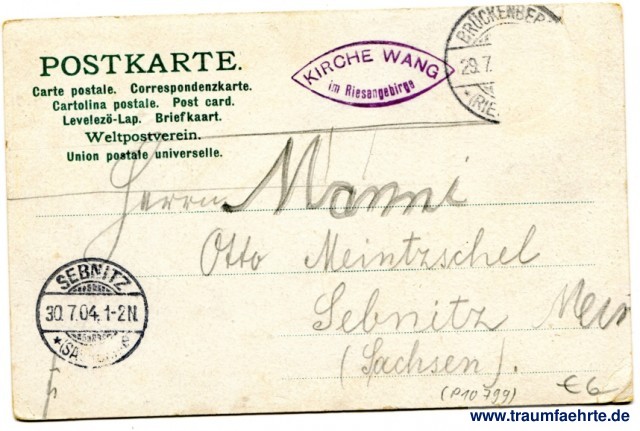 POSTKARTE.
Carte postale. Correspondenzkarte.
Cartolina postale. Post card.
Levelezö-Lap. Briefkaart.
Weltpostverein.
Union postale universelle.
KIRCHE WANG
im Riesengebirge
BRÜCKENBER
29.7.
(RIE
Herrn Manni
Otto Meintzschel
Sebnitz
(Sachsen).
SEBNITZ
30.7.04.1-2N.
(P10799)
€6
www.traumfaehrte.de